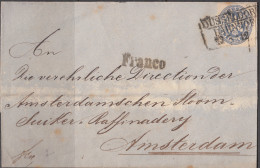 Franco
An
Die verehrliche Direction der
Amsterdamschen Stoom-
Suiker-Raffinadery
Amsterdam